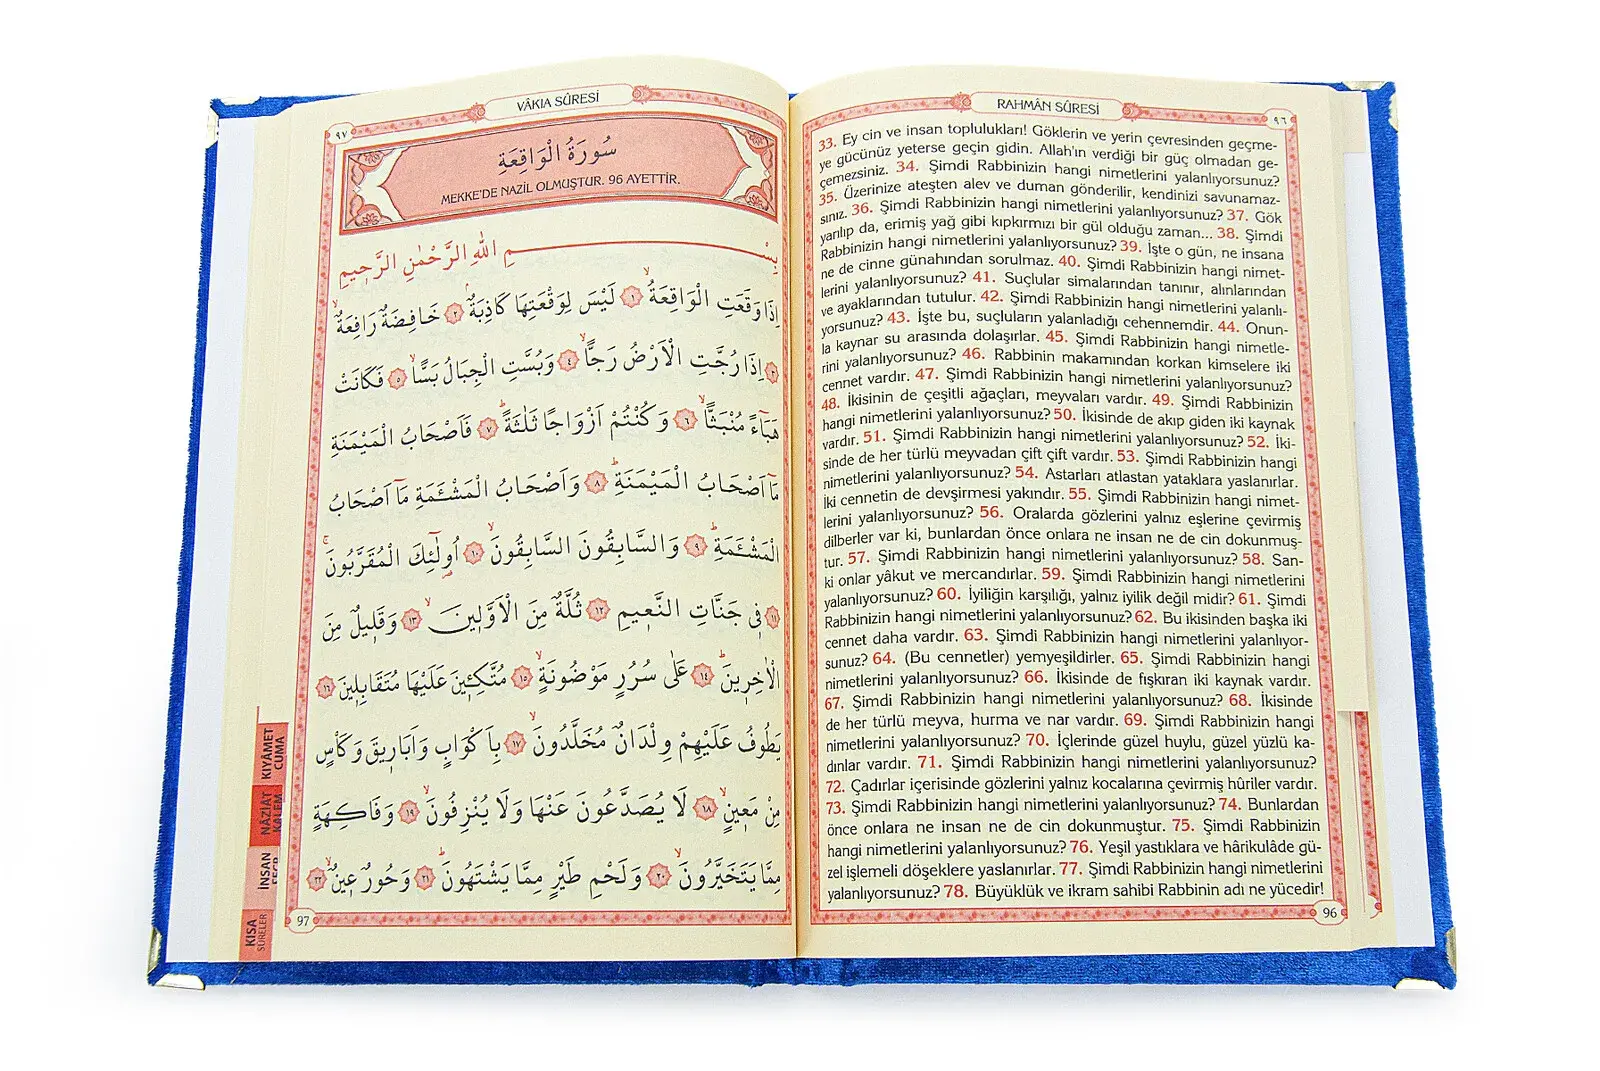 RAHMÂN SÛRESİ
٩٦
33. Ey cin ve insan toplulukları! Göklerin ve yerin çevresinden geçme-
ye gücünüz yeterse geçin gidin. Allah'ın verdiği bir güç olmadan ge-
çemezsiniz. 34. Şimdi Rabbinizin hangi nimetlerini yalanlıyorsunuz?
35. Üzerinize ateşten alev ve duman gönderilir, kendinizi savunamaz-
sınız. 36. Şimdi Rabbinizin hangi nimetlerini yalanlıyorsunuz? 37. Gök
yarılıp da, erimiş yağ gibi kıpkırmızı bir gül olduğu zaman... 38. Şimdi
Rabbinizin hangi nimetlerini yalanlıyorsunuz? 39. İşte o gün, ne insana
ne de cinne günahından sorulmaz. 40. Şimdi Rabbinizin hangi nimet-
lerini yalanlıyorsunuz? 41. Suçlular simalarından tanınır, alınlarından
ve ayaklarından tutulur. 42. Şimdi Rabbinizin hangi nimetlerini yalanlı-
yorsunuz? 43. İşte bu, suçluların yalanladığı cehennemdir. 44. Onun-
la kaynar su arasında dolaşırlar. 45. Şimdi Rabbinizin hangi nimetle-
rini yalanlıyorsunuz? 46. Rabbinin makamından korkan kimselere iki
cennet vardır. 47. Şimdi Rabbinizin hangi nimetlerini yalanlıyorsunuz?
48. İkisinin de çeşitli ağaçları, meyvaları vardır. 49. Şimdi Rabbinizin
hangi nimetlerini yalanlıyorsunuz? 50. İkisinde de akıp giden iki kaynak
vardır. 51. Şimdi Rabbinizin hangi nimetlerini yalanlıyorsunuz? 52. İki-
sinde de her türlü meyvadan çift çift vardır. 53. Şimdi Rabbinizin hangi
nimetlerini yalanlıyorsunuz? 54. Astarları atlastan yataklara yaslanırlar.
İki cennetin de devşirmesi yakındır. 55. Şimdi Rabbinizin hangi nimet-
lerini yalanlıyorsunuz? 56. Oralarda gözlerini yalnız eşlerine çevirmiş
dilberler var ki, bunlardan önce onlara ne insan ne de cin dokunmuş-
tur. 57. Şimdi Rabbinizin hangi nimetlerini yalanlıyorsunuz? 58. San-
ki onlar yâkut ve mercandırlar. 59. Şimdi Rabbinizin hangi nimetlerini
yalanlıyorsunuz? 60. İyiliğin karşılığı, yalnız iyilik değil midir? 61. Şimdi
Rabbinizin hangi nimetlerini yalanlıyorsunuz? 62. Bu ikisinden başka iki
cennet daha vardır. 63. Şimdi Rabbinizin hangi nimetlerini yalanlıyor-
sunuz? 64. (Bu cennetler) yemyeşildirler. 65. Şimdi Rabbinizin hangi
nimetlerini yalanlıyorsunuz? 66. İkisinde de fışkıran iki kaynak vardır.
67. Şimdi Rabbinizin hangi nimetlerini yalanlıyorsunuz? 68. İkisinde
de her türlü meyva, hurma ve nar vardır. 69. Şimdi Rabbinizin hangi
nimetlerini yalanlıyorsunuz? 70. İçlerinde güzel huylu, güzel yüzlü ka-
dınlar vardır. 71. Şimdi Rabbinizin hangi nimetlerini yalanlıyorsunuz?
72. Çadırlar içerisinde gözlerini yalnız kocalarına çevirmiş hûriler vardır.
73. Şimdi Rabbinizin hangi nimetlerini yalanlıyorsunuz? 74. Bunlardan
önce onlara ne insan ne de cin dokunmuştur. 75. Şimdi Rabbinizin
hangi nimetlerini yalanlıyorsunuz? 76. Yeşil yastıklara ve hârikulâde gü-
zel işlemeli döşeklere yaslanırlar. 77. Şimdi Rabbinizin hangi nimetlerini
yalanlıyorsunuz? 78. Büyüklük ve ikram sahibi Rabbinin adı ne yücedir!
96
VÂKIA SÛRESİ
٩٧
سُورَةُ الْوَاقِعَةِ
MEKKE'DE NAZİL OLMUŞTUR. 96 AYETTİR.
بِسْــــمِ اللهِ الرَّحْمٰنِ الرَّحِيمِ
اِذَا وَقَعَتِ الْوَاقِعَةُۙ ١ لَيْسَ لِوَقْعَتِهَا كَاذِبَةٌۢ ٢ خَافِضَةٌ رَافِعَةٌۙ
٣ اِذَا رُجَّتِ الْاَرْضُ رَجًّاۙ ٤ وَبُسَّتِ الْجِبَالُ بَسًّاۙ ٥ فَكَانَتْ
هَبَٓاءً مُنْبَثًّاۙ ٦ وَكُنْتُمْ اَزْوَاجًا ثَلٰثَةًۜ ٧ فَاَصْحَابُ الْمَيْمَنَةِ
مَٓا اَصْحَابُ الْمَيْمَنَةِۜ ٨ وَاَصْحَابُ الْمَشْـَٔمَةِ مَٓا اَصْحَابُ
الْمَشْـَٔمَةِۜ ٩ وَالسَّابِقُونَ السَّابِقُونَۙ ١٠ اُولٰٓئِكَ الْمُقَرَّبُونَۚ
١١ فِي جَنَّاتِ النَّعِيمِ ١٢ ثُلَّةٌ مِنَ الْاَوَّلِينَۙ ١٣ وَقَلِيلٌ مِنَ
الْاٰخِرِينَۜ ١٤ عَلٰى سُرُرٍ مَوْضُونَةٍۙ ١٥ مُتَّكِـِٔينَ عَلَيْهَا مُتَقَابِلِينَ ١٦
يَطُوفُ عَلَيْهِمْ وِلْدَانٌ مُخَلَّدُونَۙ ١٧ بِاَكْوَابٍ وَاَبَارِيقَ وَكَأْسٍ
مِنْ مَعِينٍۙ ١٨ لَا يُصَدَّعُونَ عَنْهَا وَلَا يُنْزِفُونَۙ ١٩ وَفَاكِهَةٍ
مِمَّا يَتَخَيَّرُونَۙ ٢٠ وَلَحْمِ طَيْرٍ مِمَّا يَشْتَهُونَۜ ٢١ وَحُورٌ عِينٌۙ ٢٢
97
KIYÂMET
CUMA
NÂZİAT
KALEM
İNSAN
KISA
SÛRELER